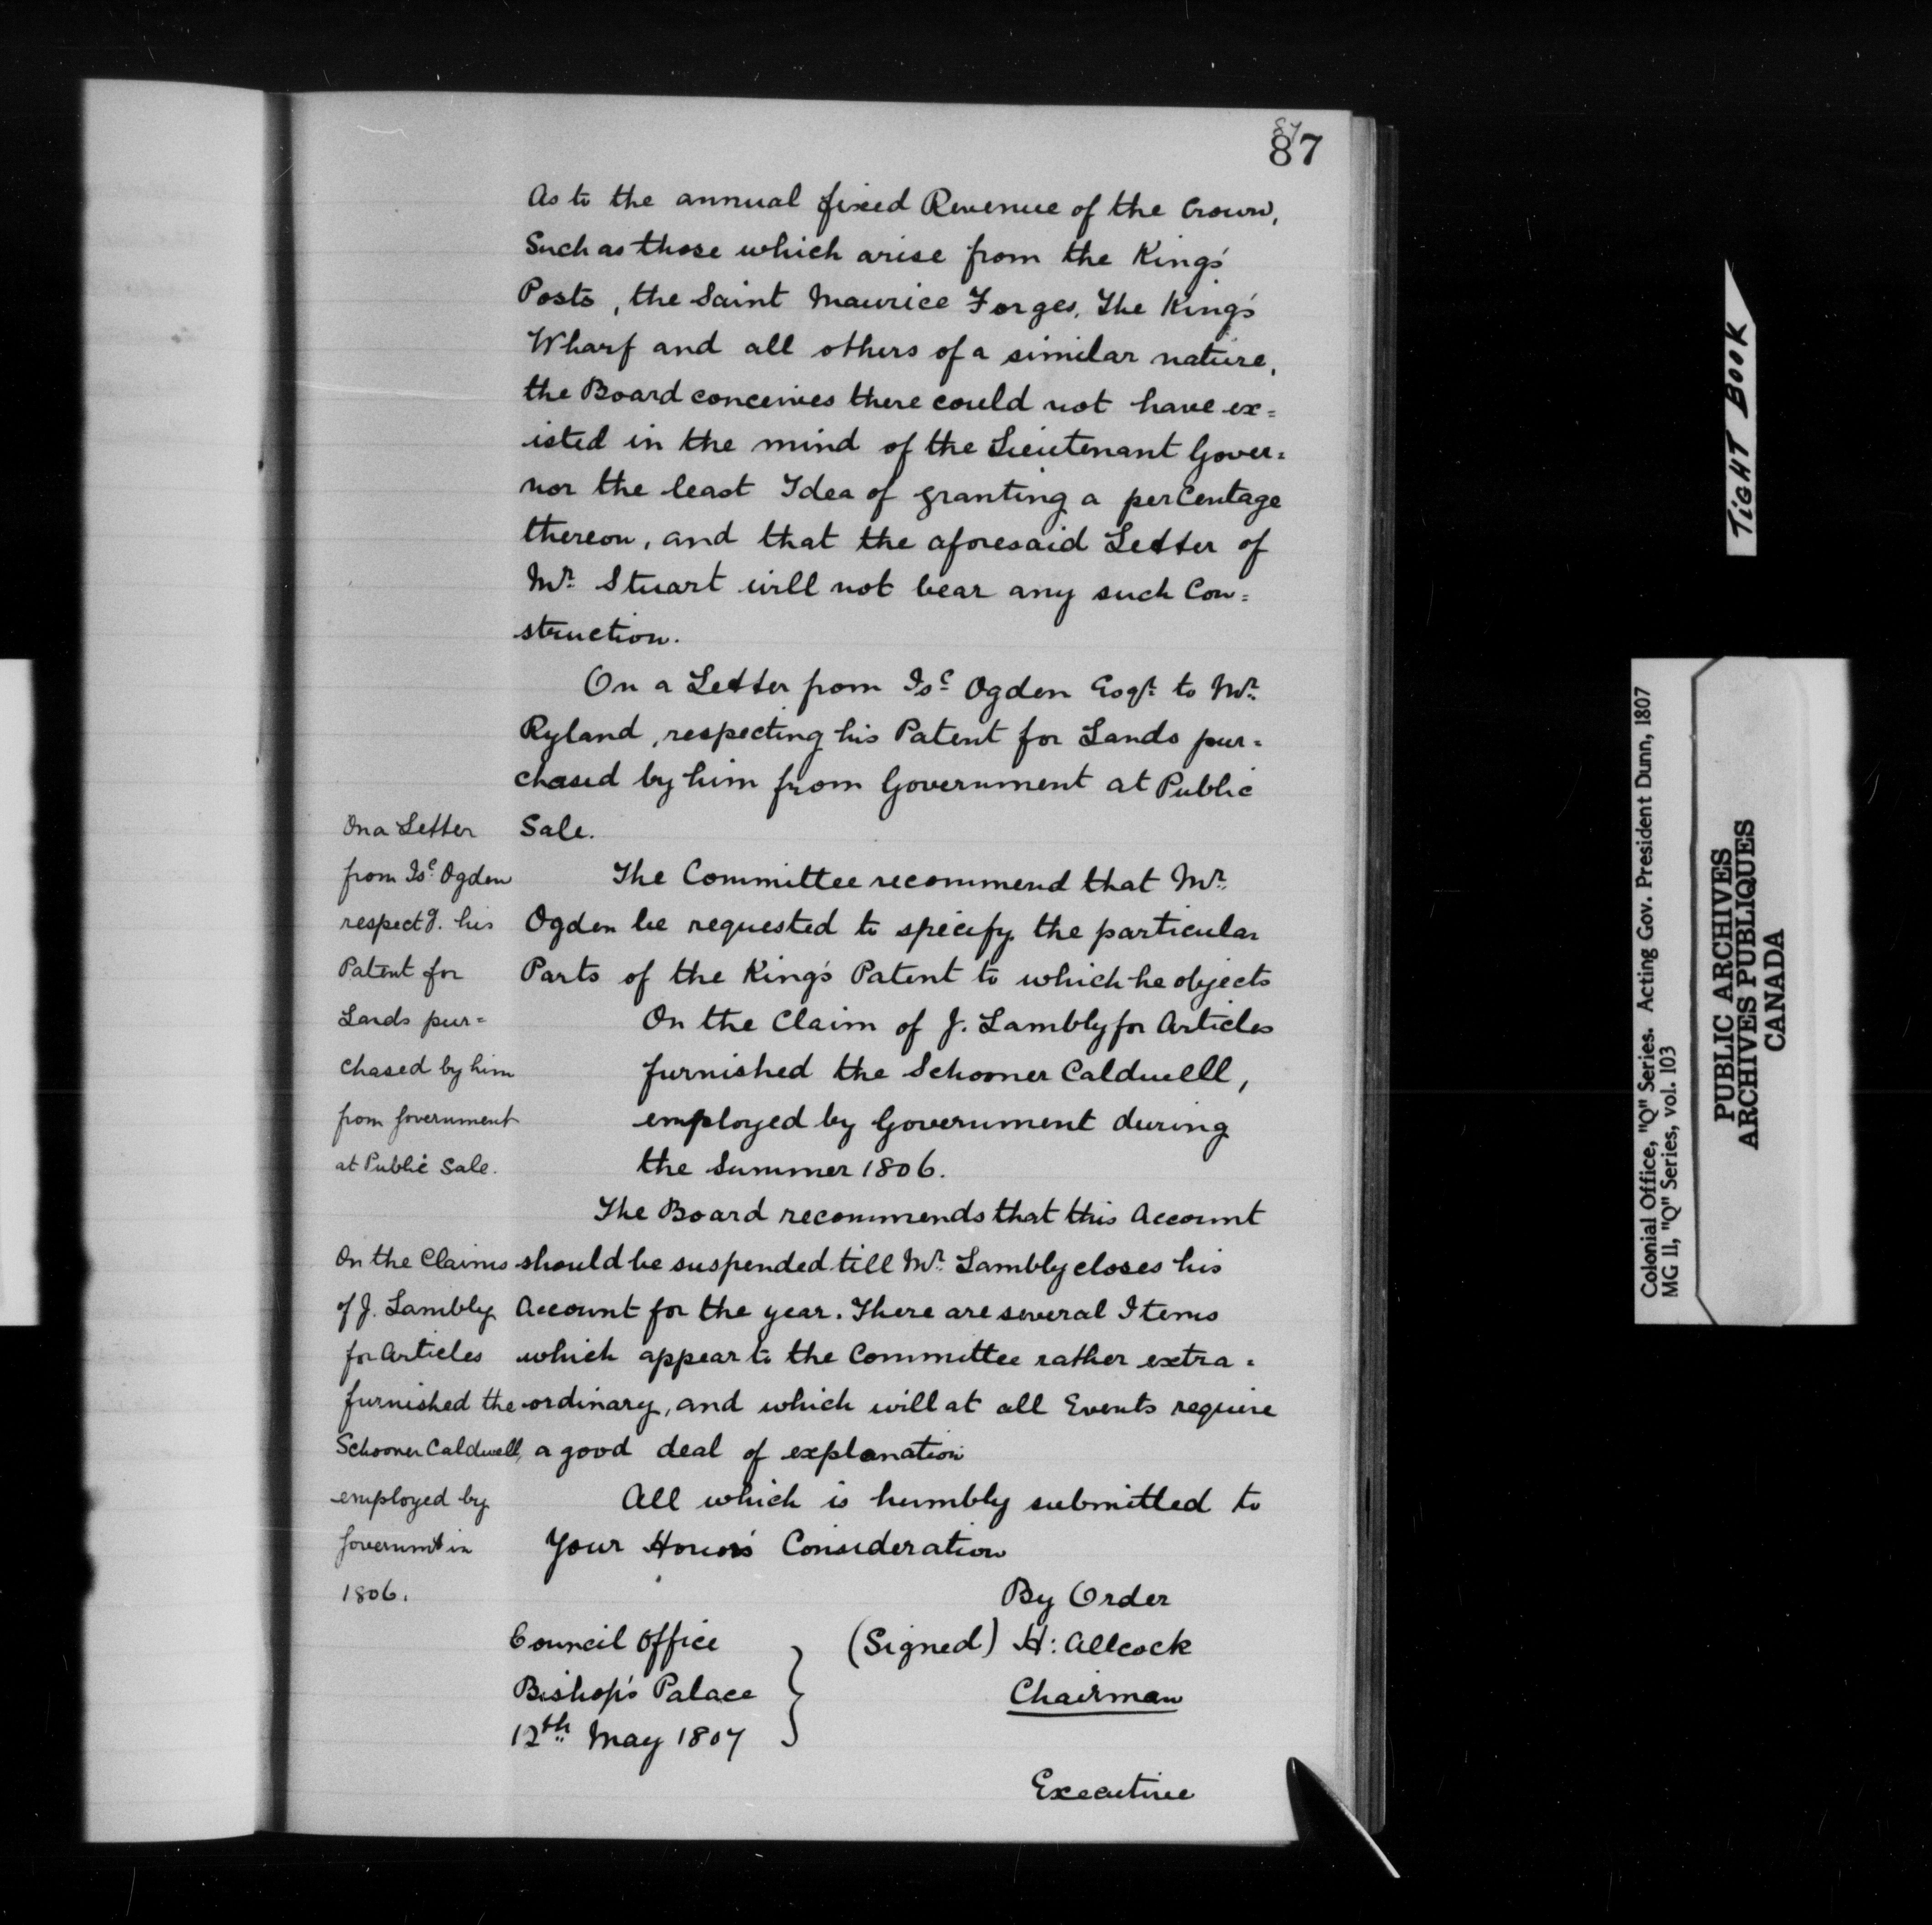 87
87
As to the annual fixed Revenue of the Crown,
Such as those which arise from the King's
Posts, the Saint Maurice Forges, The King's
Wharf and all others of a similar nature,
the Board conceives there could not have ex=
isted in the mind of the Lieutenant Gover=
nor the least Idea of granting a perCentage
thereon, and that the aforesaid Letter of
Mr. Stuart will not bear any such Con=
struction.
On a Letter from Isc. Ogden Esqr. to Mr.
Ryland, respecting his Patent for Lands pur=
chased by him from Government at Public
Sale.
On a Letter
from Isc. Ogden
respectg. his
Patent for
Lands pur=
chased by him
from Government
at Public Sale.
The Committee recommend that Mr.
Ogden be requested to specify the particular
Parts of the King's Patent to which he objects
On the Claim of J. Lambly for Articles
furnished the Schooner Caldwell,
employed by Government during
the Summer 1806.
The Board recommends that this Account
should be suspended till Mr. Lambly closes his
Account for the year. There are several Items
which appear to the Committee rather extra=
ordinary, and which will at all Events require
a good deal of explanation
On the Claims
of J. Lambly
for Articles
furnished the
Schooner Caldwell,
employed by
Governmt in
1806.
All which is humbly submitted to
Your Honor's Consideration
By Order
(Signed) H: Allcock
Chairman
Council Office
Bishop's Palace
12th May 1807
Executive
TIGHT BOOK
Colonial Office, "Q" Series. Acting Gov. President Dunn, 1807
MG 11, "Q" Series, vol. 103
PUBLIC ARCHIVES
ARCHIVES PUBLIQUES
CANADA